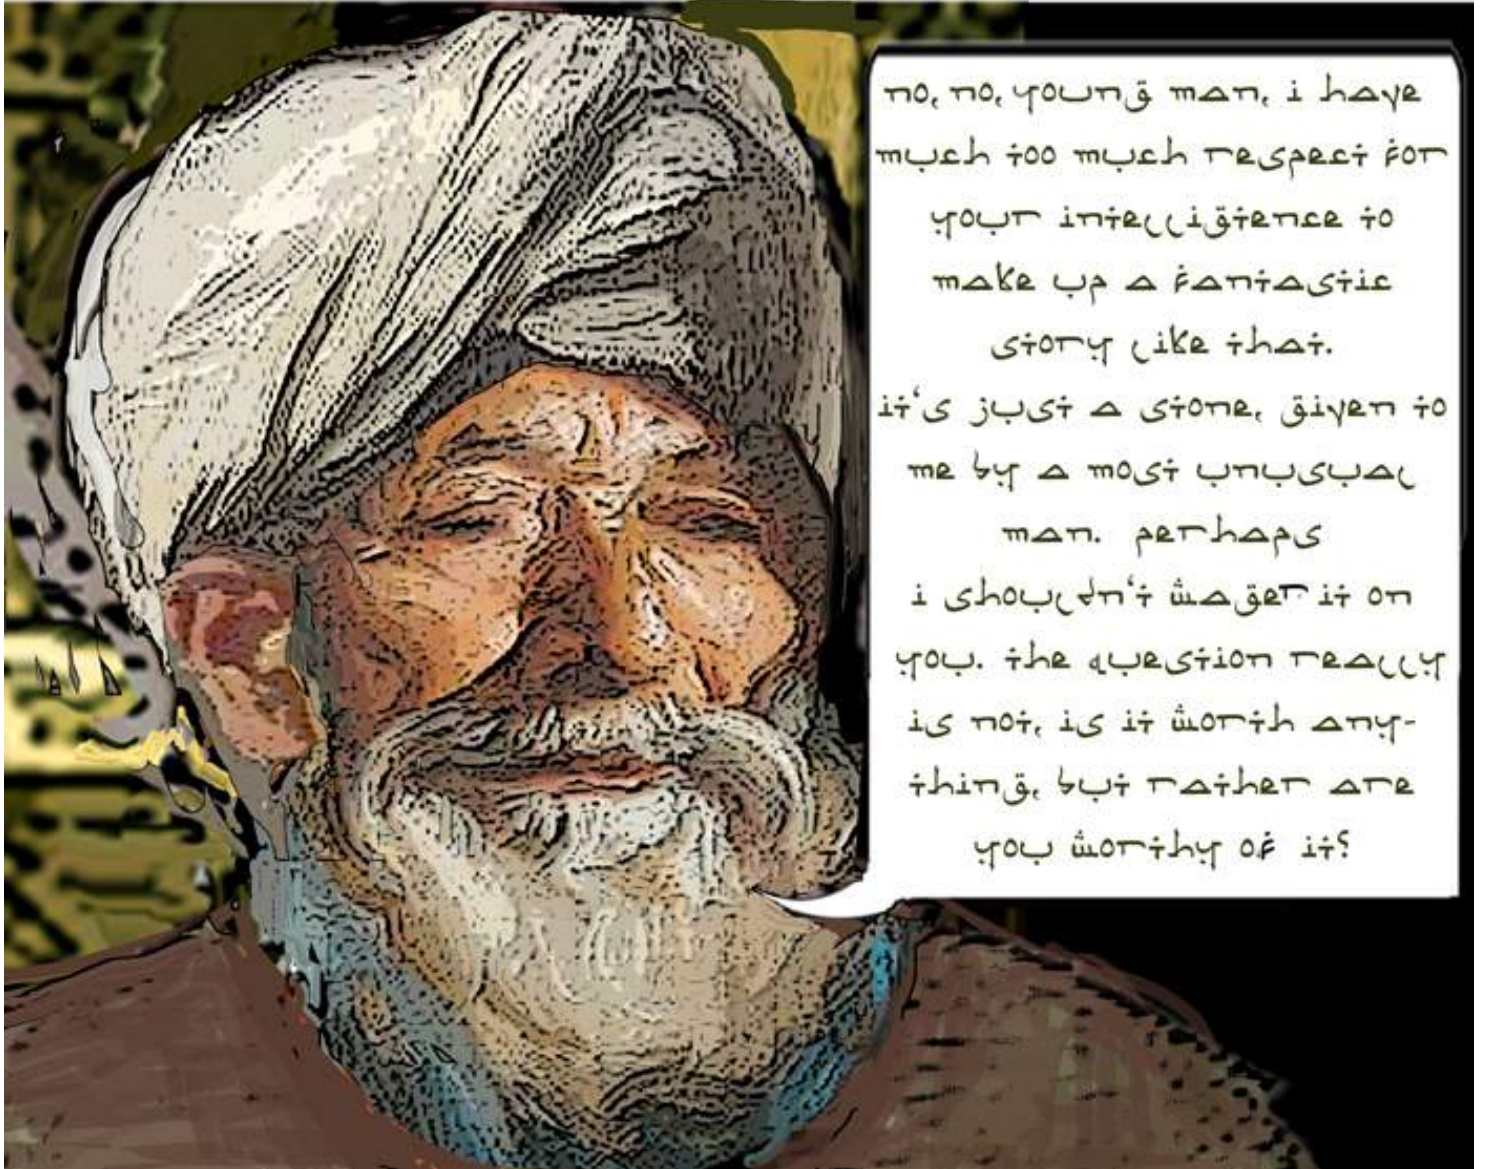 no, no, young man, i have
much too much respect for
your intelligtence to
make up a fantastic
story like that.
it's just a stone, given to
me by a most unusual
man. perhaps
i shouldn't wager it on
you. the question really
is not, is it worth any-
thing, but rather are
you worthy of it?